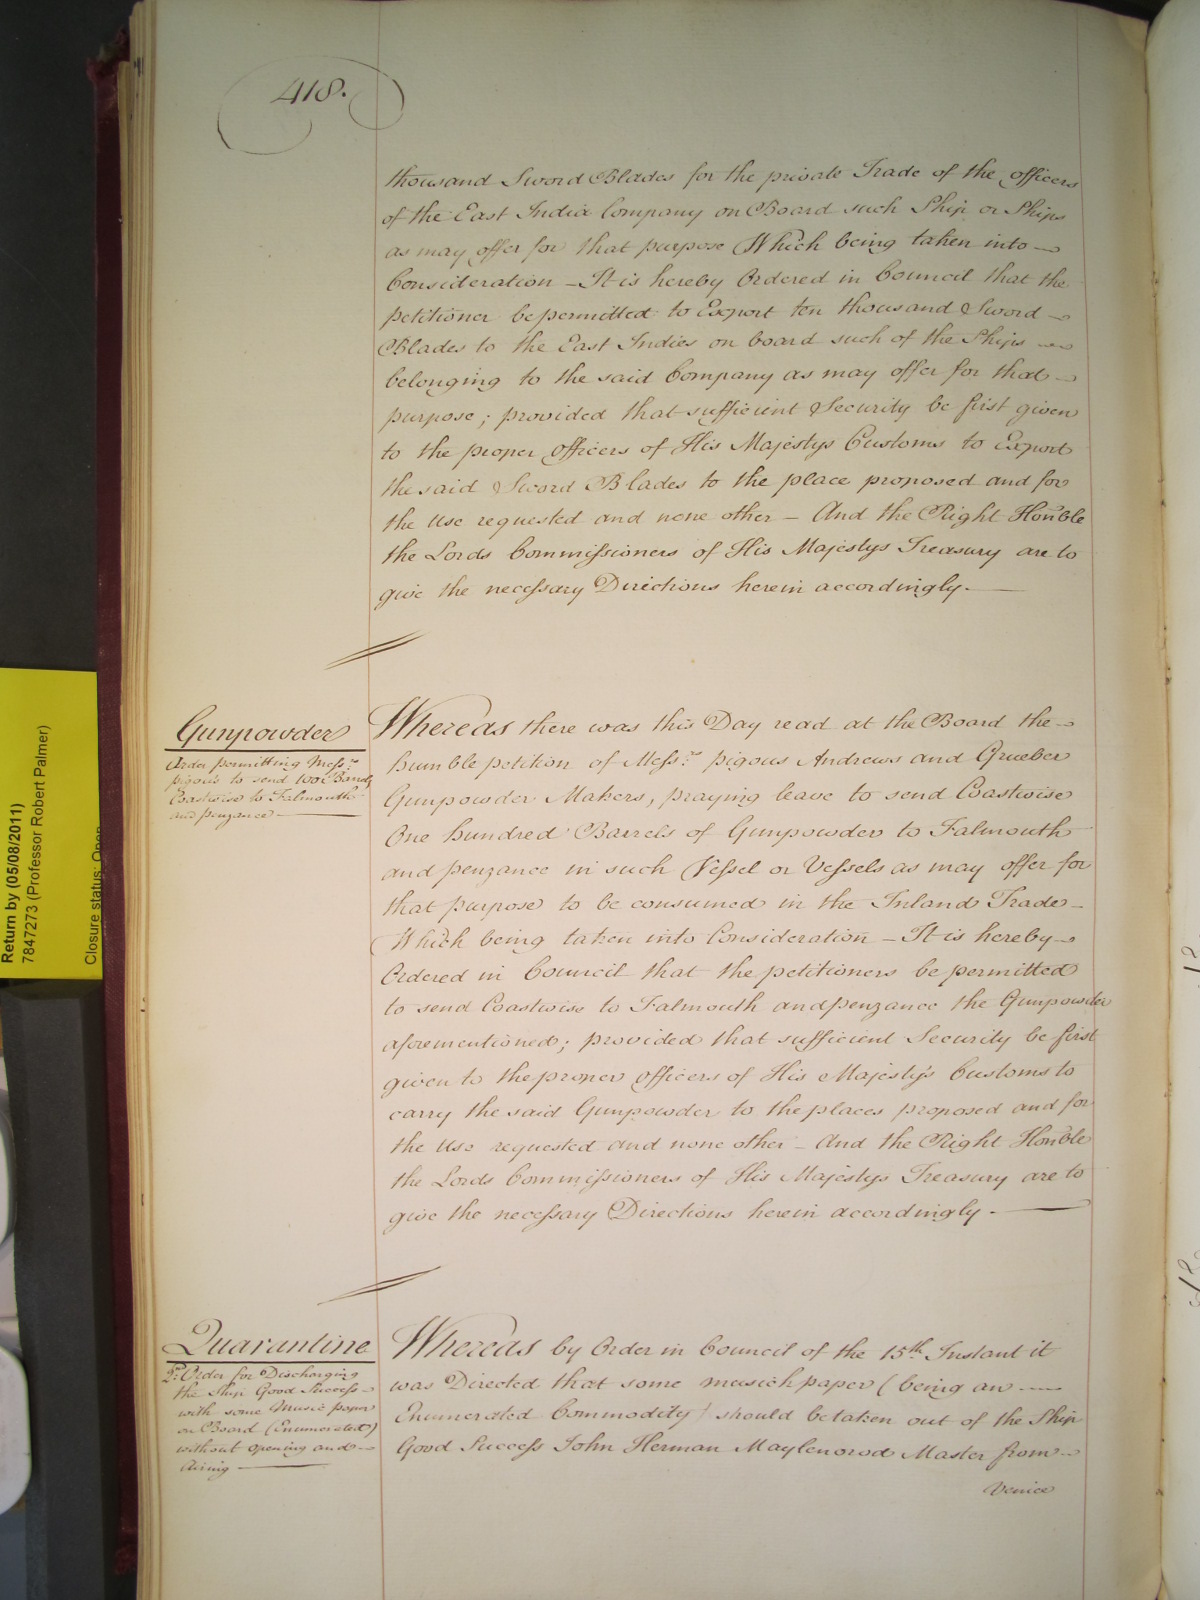 418.
thousand Sword Blades for the private Trade of the officers
of the East India Company on Board such Ship or Ships
as may offer for that purpose Which being taken into
Consideration – It is hereby Ordered in Council that the
petitioner be permitted to Export ten thousand Sword
Blades to the East Indies on board such of the Ships
belonging to the said Company as may offer for that
purpose; provided that sufficient Security be first given
to the proper officers of His Majestys Customs to Export
the said Sword Blades to the place proposed and for
the Use requested and none other – And the Right Honble
the Lords Commissioners of His Majestys Treasury are to
give the necessary Directions herein accordingly.
Gunpowder
Order permitting Messrs
pigous to send 100 Barrls
Coastwise to Falmouth
and penzance
Whereas there was this Day read at the Board the
humble petition of Messrs pigous Andrews and Grueber
Gunpowder Makers, praying leave to send Coastwise
One hundred Barrels of Gunpowder to Falmouth
and penzance in such Vessel or Vessels as may offer for
that purpose to be consumed in the Inland Trade –
Which being taken into Consideration – It is hereby
Ordered in Council that the petitioners be permitted
to send Coastwise to Falmouth and penzance the Gunpowder
aforementioned; provided that sufficient Security be first
given to the proper officers of His Majesty's Customs to
carry the said Gunpowder to the places proposed and for
the Use requested and none other – And the Right Honble
the Lords Commissioners of His Majestys Treasury are to
give the necessary Directions herein accordingly.
Quarantine
2d Order for Discharging
the Ship Good Success
with some Music paper
on Board (Enumerated)
without opening and
Airing
Whereas by Order in Council of the 15th Instant it
was Directed that some musick paper (being an
Enumerated Commodity) should be taken out of the Ship
Good Success John Herman Maylenord Master from
Venice
Return by (05/08/2011)
7847273 (Professor Robert Palmer)
Closure status: Open